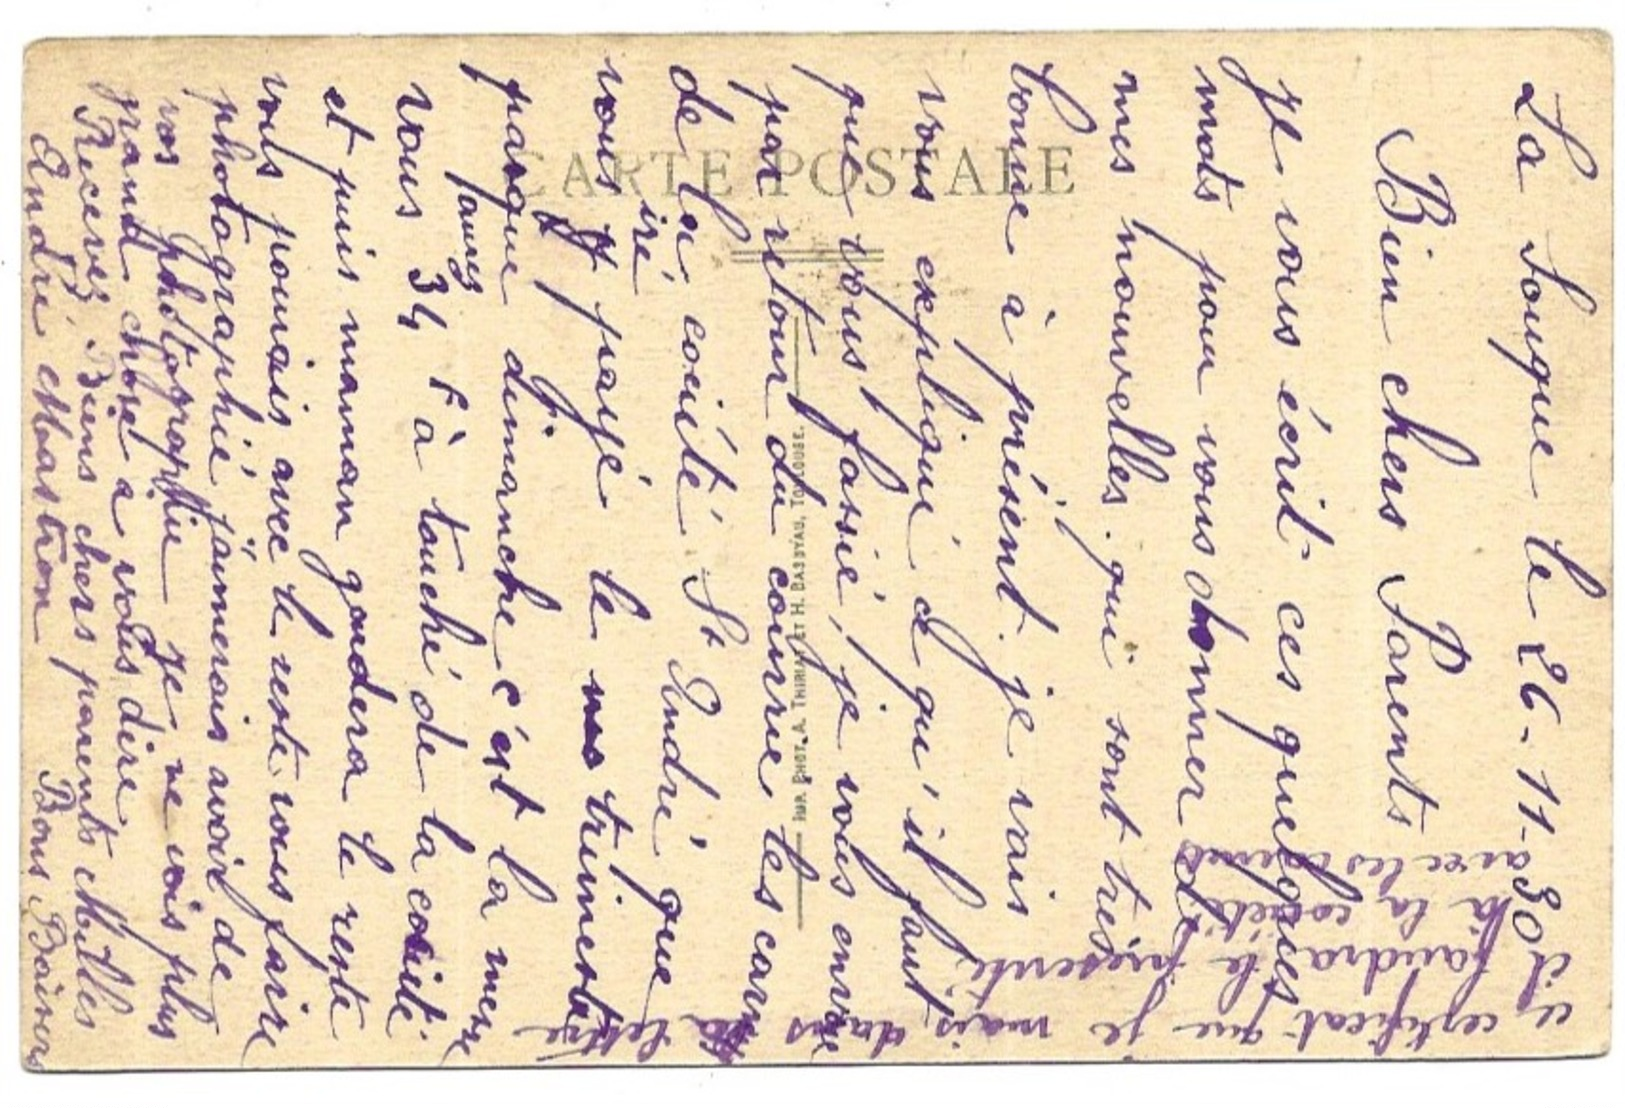 La Fougue le 26-11-30
Bien chers Parents
Je vous écrit ces quelques
mots pour vous donner de
mes nouvelles. qui sont très
bonne à présent. je vais
vous expliqué ce qu'il faut
que vous fassié, je vous envoie
par retour du courrie les carnets
de la coiété St André que
vous iré payé le trimestre
parque dimanche c'est la mere
vous taurez 34 F à touché de la coiété
et puis maman gardera le reste
vous pourrais avec le reste vous faire
photographié j'aimerais avoir de
vos photographie je ne vois plus
grand chose a vous dire
Recevez Biens chers parents Milles
André Mastron Bons Baisers
ce certificat que je mais dans la lettre
il faudra le présenté
à la coiété
avec les carnets
CARTE POSTALE
IMP. PHOT. A. THIRIAT ET H. BASUYAU, TOULOUSE.